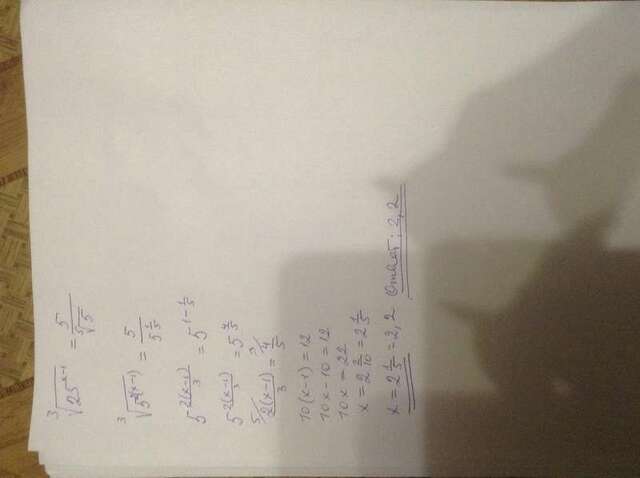 ∛(25^(x-1)) = 5/⁵√5
∛(5^(2(x-1))) = 5/5^(1/5)
5^(2(x-1)/3) = 5^(1-1/5)
5^(2(x-1)/3) = 5^(4/5)
⁵⁄ 2(x-1)/3 = ³⁄ 4/5
10(x-1) = 12
10x - 10 = 12
10x = 22
x = 2 2/10 = 2 1/5
x = 2 1/5 = 2,2 Ответ: 2,2